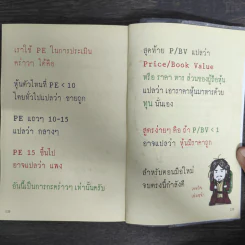 เราใช้ PE ในการประเมิน
คร่าวๆ ได้คือ
หุ้นตัวไหนที่ PE < 10
โดยทั่วไปแปลว่า ขายถูก
PE แถวๆ 10-15
แปลว่า กลางๆ
PE 15 ขึ้นไป
อาจแปลว่า แพง
อันนี้เป็นการกะคร่าวๆ เท่านั้นครับ
สุดท้าย P/BV แปลว่า
Price/Book Value
หรือ ราคา หาร ส่วนของผู้ถือหุ้น
แปลว่า เอาราคาหุ้นมาหารด้วย
ทุน นั่นเอง
สูตรง่ายๆ คือ ถ้า P/BV < 1
อาจแปลว่า หุ้นมีราคาถูก
สำหรับตอนมือใหม่
จบตรงนี้กำลังดี